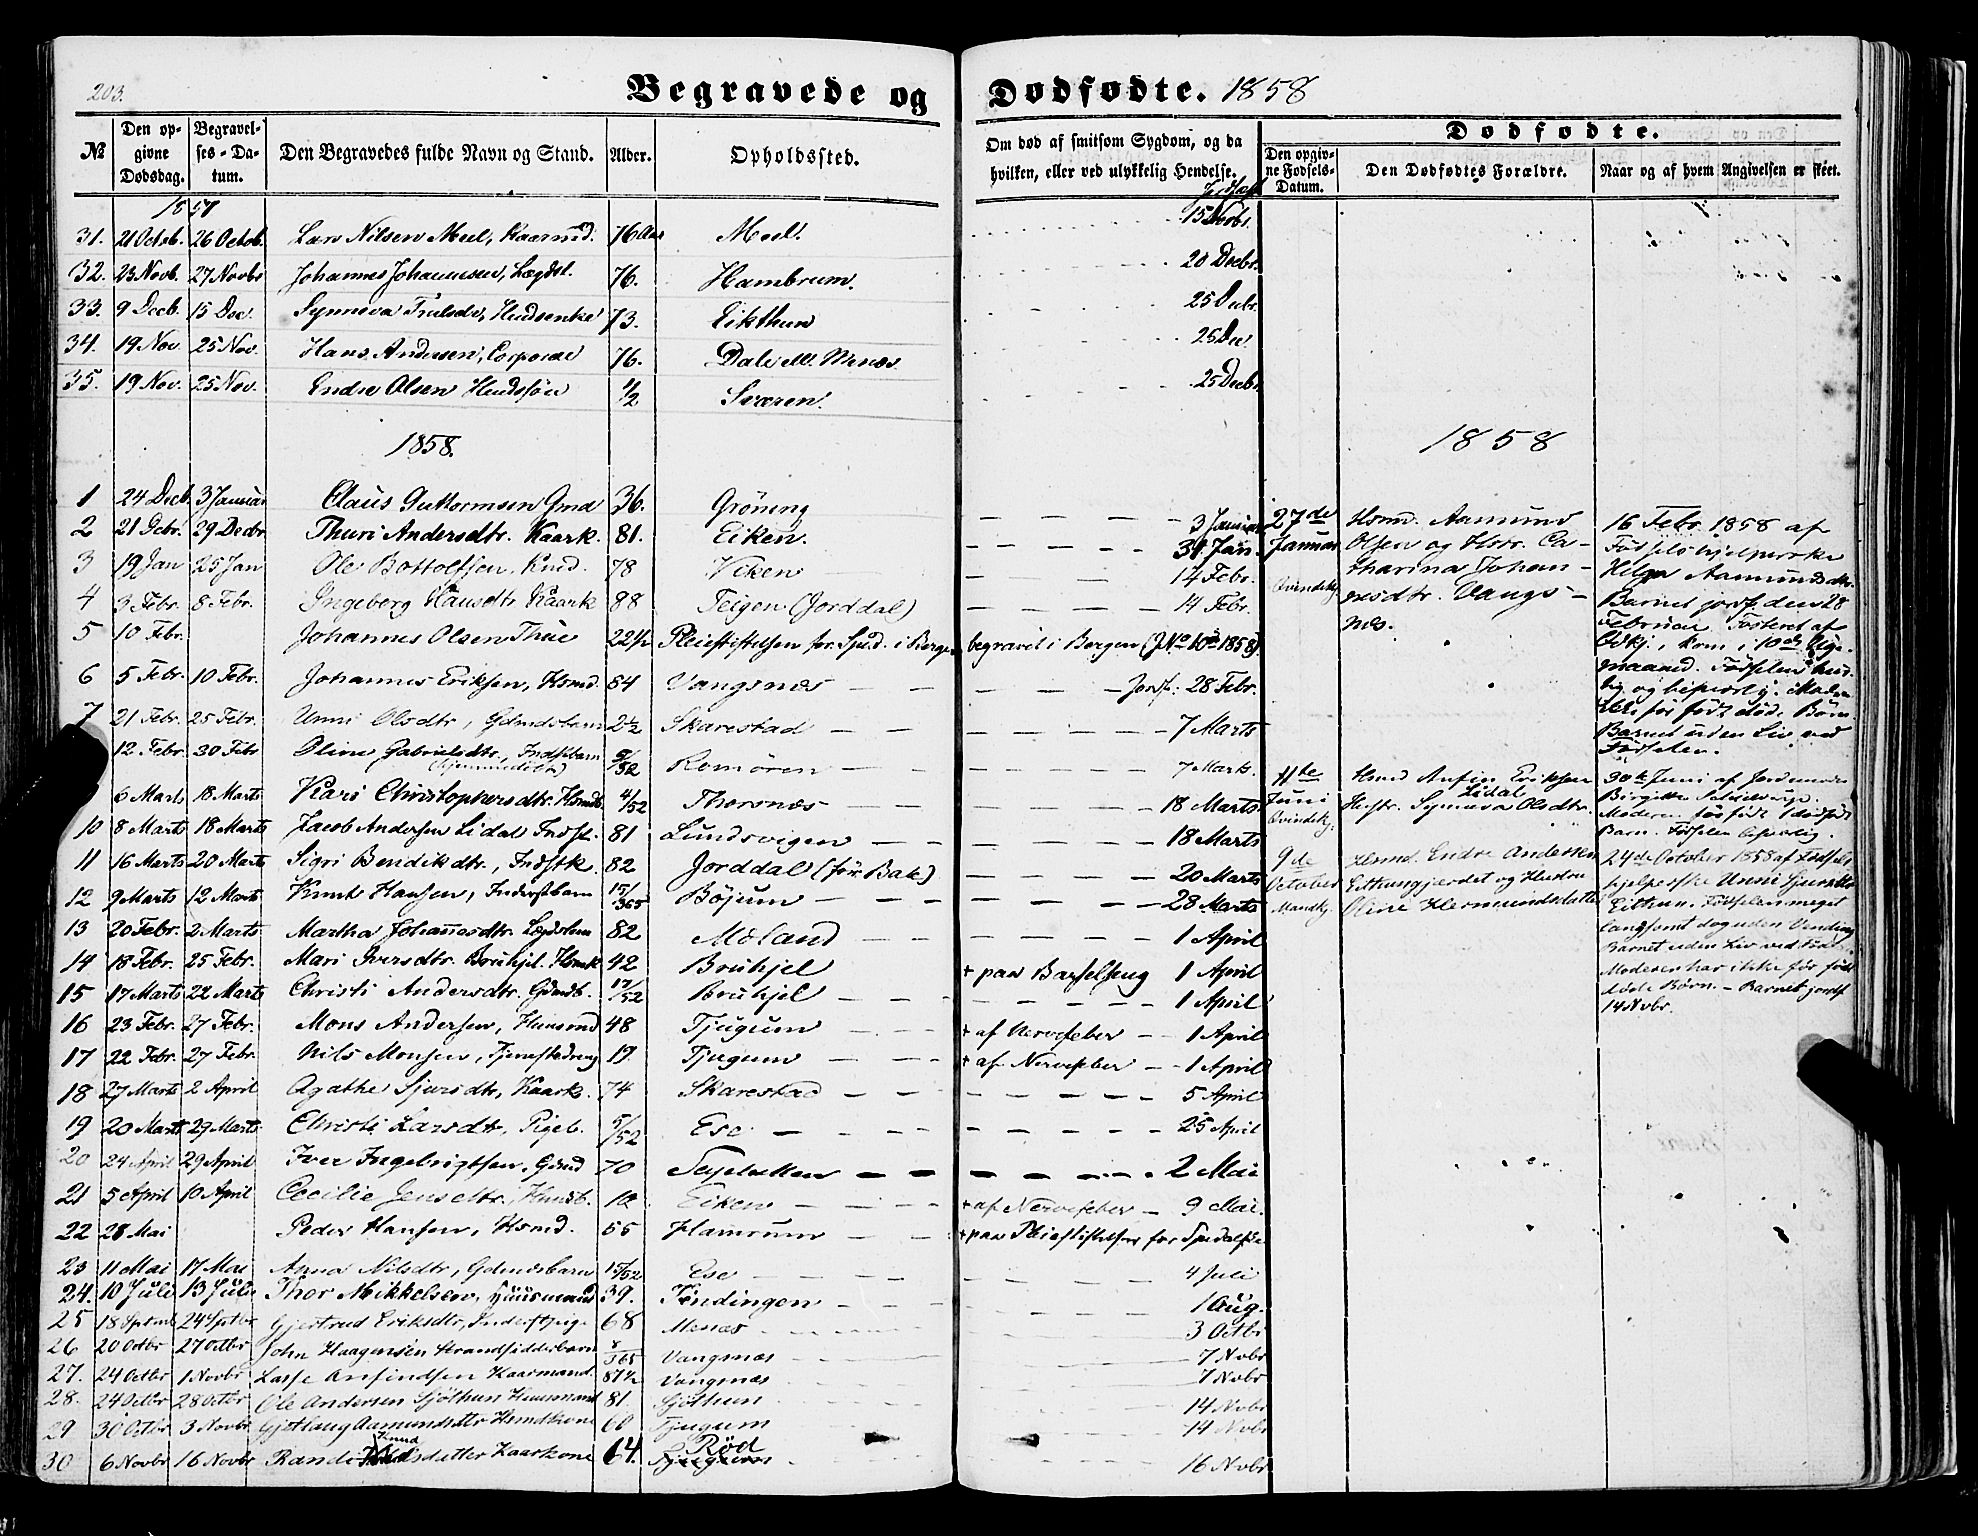 203.
Begravede og Dødfødte. 1858
№ Den opgivne Dødsdag. Begravelses-Datum. Den Begravedes fulde Navn og Stand. Alder. Opholdssted. Om død af smitsom Sygdom, og da hvilken, eller ved ulykkelig Hendelse.
Dødfødte.
Den opgivne Fødsels-Datum. Den Dødfødtes Forældre. Naar og af hvem Angivelsen er skeet.
1857
31. 21 Octob. 26 Octob. Lars Nilsen Meel, Kaarmd. 76 Aar Meel. 15 Novbr.
32. 23 Novb. 27 Novbr Johannes Johannesen, Lægdsl. 76. Hambrum. 20 Decbr.
33. 9 Decb. 15 Dec. Synneva Trulsdr, 73. Eikthun 25 Decbr.
34. 19 Nov. 25 Nov. Hans Andersen, Corporal 76. Dale 25 Dec.
35. 19 Nov. 25 Nov. Endre Olsen 1/2 Sværen. 25 Decbr.
1858.
1 24 Decb. 3 Januar Claus Guttormsen Gmd 36. Gröning 3 Januar
2 21 Decbr. 29 Decbr Thuri Andersdtr. Kaark. 81. Eiken. 31 Jan.
3 19 Jan 25 Jan Ole Bottolfsen, Kmd. 78 Veken 14 Febr.
4 3 Febr. 8 Febr. Ingeborg Hansdtr Kaark 88 Teigen (Jorddal) 14 Febr.
5 10 Febr. Johannes Olsen Thue 22 1/2 Pleiestiftelsen for Sped. i Bergen begravet i Bergen
6 5 Febr. 10 Febr. Johannes Eriksen, Hsmd. 64 Vangsnæs Jordf. 28 Febr.
7 21 Febr. 25 Febr. Unni Olsdtr, Gdmdsbarn 2 1/2 Skarestad 7 Marts
12 Febr. 30 Febr Oline Gabrielsdtr., Indstbarn /52 Romören 7 Marts.
6 Marts 18 Marts Kari Christophersdtr. Hsmdb. 4/52 Thorsnæs 18 Marts
10 8 Marts 18 Marts Jacob Andersen Lidal Indst. 81 Lundsvigen 18 Marts
11 16 Marts 20 Marts Sigri Bendiksdtr., Indstk. 82 Jorddal (før Bale) 20 Marts
12 9 Marts 12 Marts Knut Hansen, Inderstbarn 15/365 Böjum 28 Marts
13 20 Febr. 2 Marts Martha Johannesdtr. Lægdslem 82 Mæland 1 April
14 18 Febr. 25 Febr. Mari Iversdtr. Bruhjel. Hsmk 42 Bruhjel + paa Barselseng 1 April
15 17 Marts 22 Marts Christi Andersdtr. Gdmdb. 17/52 Bruhjel 1 April
16 23 Febr. 27 Febr. Mons Andersen, Huusmd 48 Tjugum + af Nervefeber 1 April
17 22 Febr. 27 Febr. Nils Monsen, Tjenestedreng 19. Tjugum + af Nervefeber 1 April
18 27 Marts 2 April Agathe Sjursdtr, Kaark. 74 Skarestad 5 April
19 20 Marts 29 Marts Christi Larsdtr, Pigeb. 5/52 Ese 25 April
20 24 April 29 April Iver Ingebrigtsen, Gdmd 70 2 Mai
21 5 April 10 April Cecilie Jensdtr., Husmb. 10 Eiken + af Nervefeber 9 Mai.
22 28 Mai Peder Hansen, Hsmd. 55 Hamrum + paa Pleiestiftelsen for Spedalske
23 11 Mai 17 Mai Anna Nilsdtr, Gdmdsbarn 15/52 Ese 4 Juli
24. 10 Juli 13 Juli Thor Mikkelsen, Huusmand 39. Tendingen 1 Aug.
25 18 Septemb 24 Septbr Gjertrud Eriksdtr, Inderstpige 68 Menæs 3 Octbr
26 20 Octbr 27 Octbr John Haagensen Strandsidderbarn 8/365 Vangsnæs 7 Novbr
27. 24 Octbr 1 Novbr Lasse Anfindsen Kaarmand. 87 1/2 Vangsnæs 7 Novbr
28. 24 Octbr 28 Octbr Ole Andersen Sjöthun Huusmand 81. Sjöthun 14 Novbr
29 30 Octbr 3 Novbr Gjetlaug Aamundsdtr Hsmdkone 60 Tjugum 14 Novbr
30 6 Novbr 16 Novbr Randi Knudsdatter Kaarkone 64. Röd Tjugum 16 Novbr
1858
27de Januar Qvindekj.
Hsmd. Aamund
Olsen og Hstr. Ca-
tharina Johan-
nesdtr. Vangs-
næs.
16 Febr. 1858 af
Fødselshjelperske
Helga Aamundsdtr.
Barnet jordf. den 28
Februar. Fosteret af
Qvkj., kom i 10de
maaned. Fødselen
før født død. Børn.
Barnet uden Liv ved
Fødselen.
11te Juni Qvindekj.
Hsmd Anfin Eriksen
Lidal
Hustr. Synneva Olsdtr.
30te Juni af Jordemoder
Birgitte
Moderen før født 1 dødfødt
Barn. Fødselen besværlig.
9de October Mandkj.
Hsmd. Endre Andersen
Eitthungjerdet og Hustru
Oline Hermundsdatter
24de October 1858 af Fødsels
hjelperske Unni Sjursdtr
Eitthun. Fødselen meget
langsomt dog uden Vending
Barnet uden Liv ved Føds.
Moderen har ikke før født
døde Børn. – Barnet jordf
14 Novbr.